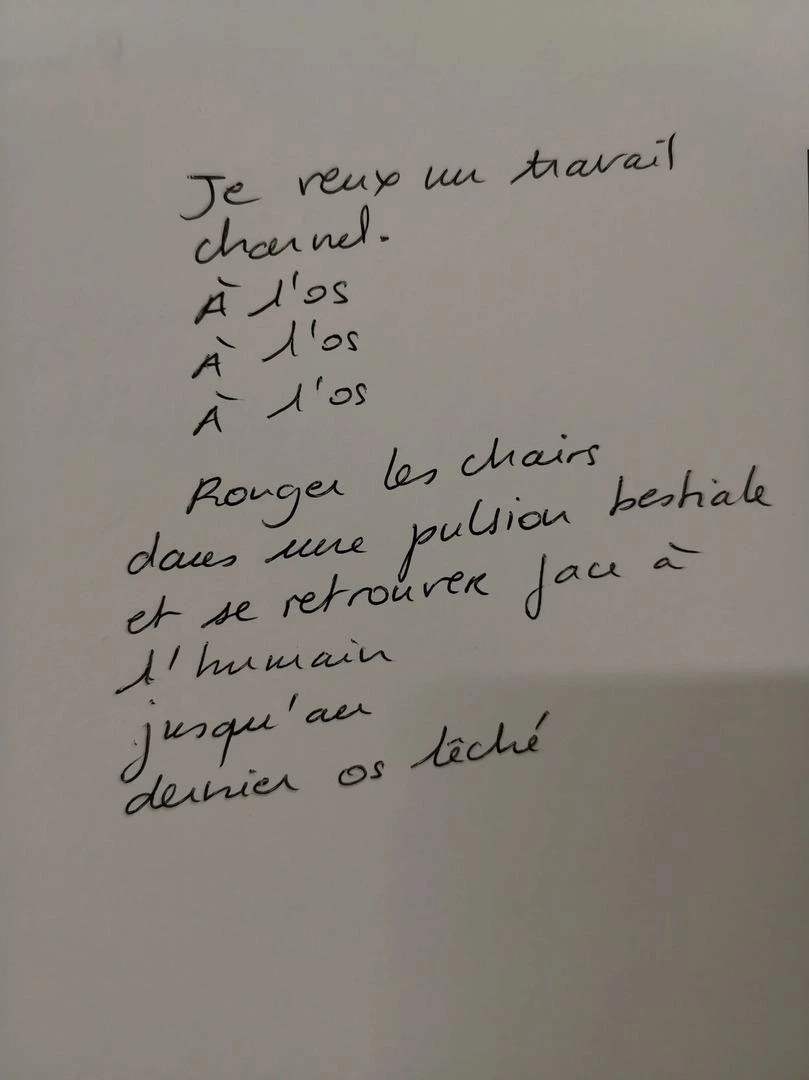 Je veux un travail
charnel.
À l'os
À l'os
À l'os
Ronger les chairs
dans une pulsion bestiale
et se retrouver face à
l'humain
jusqu'au
dernier os lêché